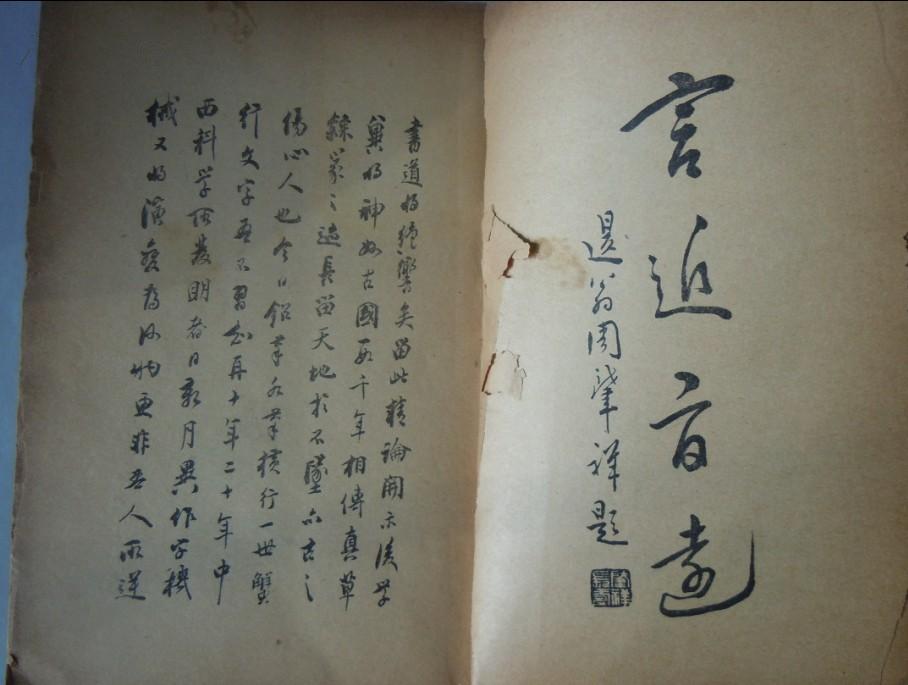 言近旨遠
退翁周肇祥題
書道將絕響矣留此精論開示後學
冀將神州古國數千年相傳真草
隸篆之迹長留天地於不墜亦古之
傷心人也今日鉛筆水筆橫行一世蟹
行文字無不習知再十年二十年中
西科學所發明者日新月異作字機
械又將演變為何物更非吾人所逆